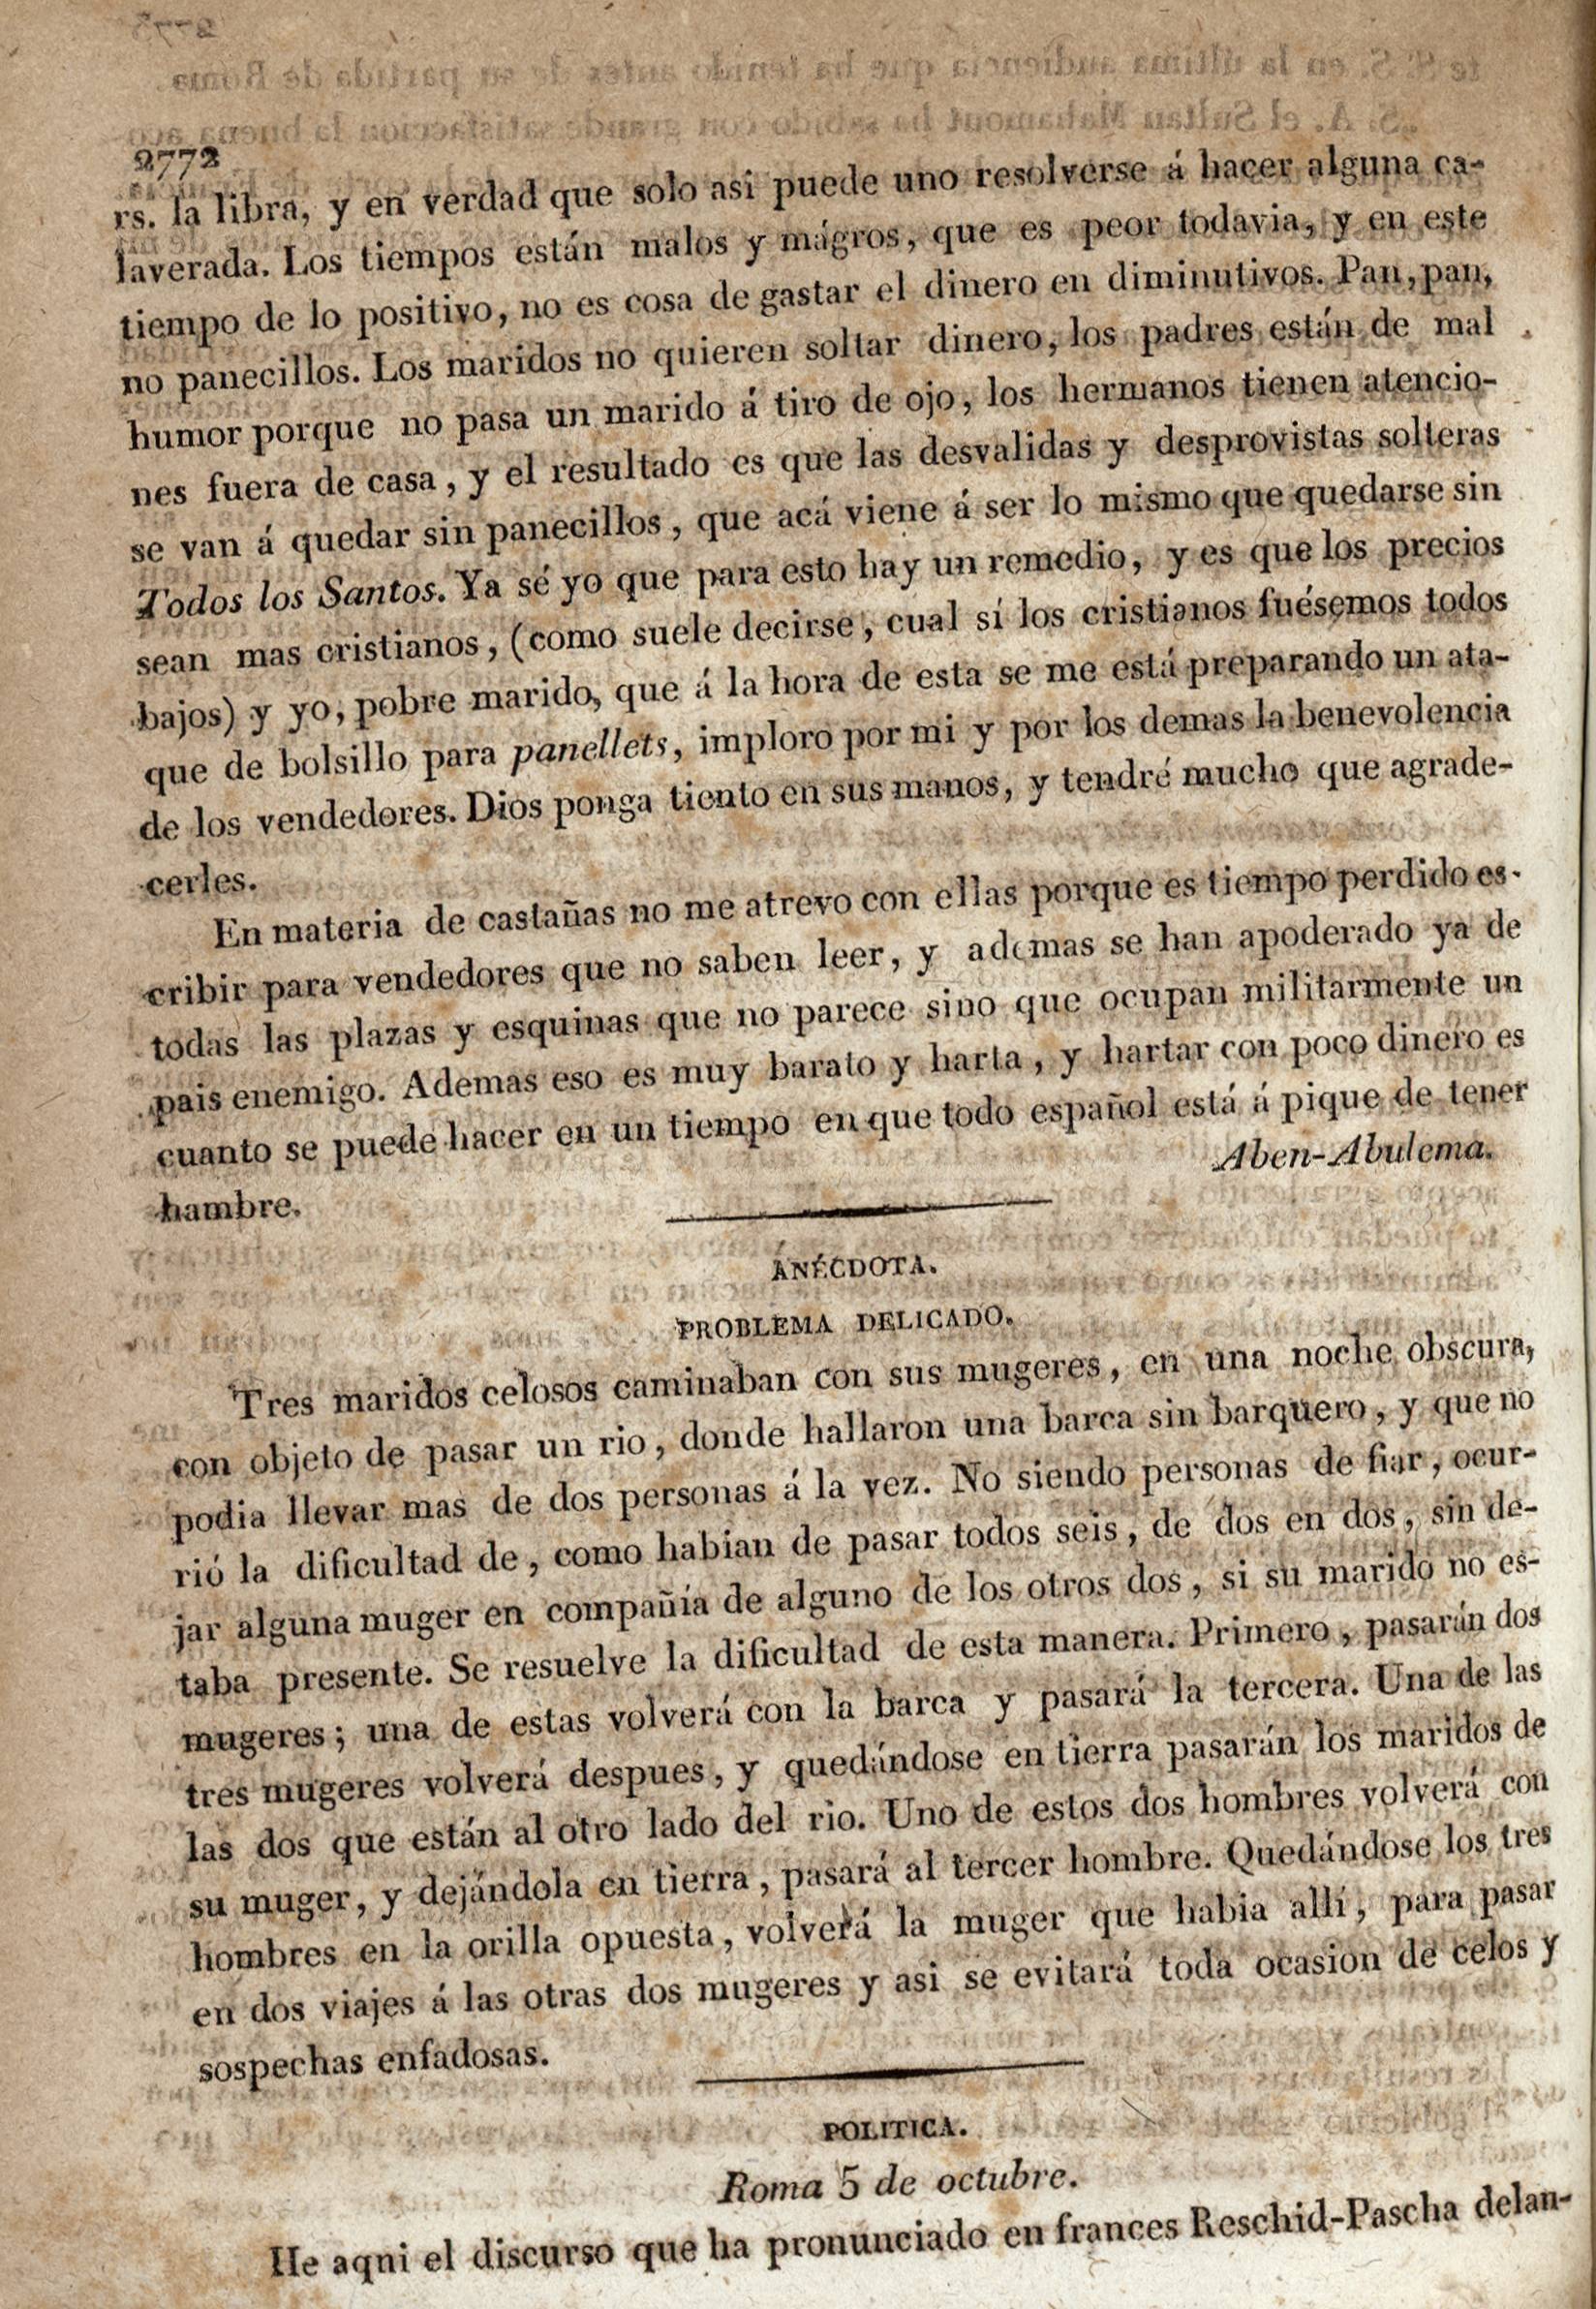 2772
rs. la libra, y en verdad que solo asi puede uno resolverse á hacer alguna ca-
laverada. Los tiempos están malos y mágros, que es peor todavia, y en este
tiempo de lo positivo, no es cosa de gastar el dinero en diminutivos. Pan, pan,
no panecillos. Los maridos no quieren soltar dinero, los padres están de mal
humor porque no pasa un marido á tiro de ojo, los hermanos tienen atencio-
nes fuera de casa, y el resultado es que las desvalidas y desprovistas solteras
se van á quedar sin panecillos, que acá viene á ser lo mismo que quedarse sin
Todos los Santos. Ya sé yo que para esto hay un remedio, y es que los precios
sean mas cristianos, (como suele decirse, cual si los cristianos fuésemos todos
bajos) y yo, pobre marido, que á la hora de esta se me está preparando un ata-
que de bolsillo para panellets, imploro por mi y por los demas la benevolencia
de los vendedores. Dios ponga tiento en sus manos, y tendré mucho que agrade-
cerles.
En materia de castañas no me atrevo con ellas porque es tiempo perdido es-
cribir para vendedores que no saben leer, y ademas se han apoderado ya de
todas las plazas y esquinas que no parece sino que ocupan militarmente un
pais enemigo. Ademas eso es muy barato y harta, y hartar con poco dinero es
cuanto se puede hacer en un tiempo en que todo español está á pique de tener
hambre.
Aben-Abulema.
ANÉCDOTA.
PROBLEMA DELICADO.
Tres maridos celosos caminaban con sus mugeres, en una noche obscura,
con objeto de pasar un rio, donde hallaron una barca sin barquero, y que no
podia llevar mas de dos personas á la vez. No siendo personas de fiar, ocur-
rió la dificultad de, como habian de pasar todos seis, de dos en dos, sin de-
jar alguna muger en compañia de alguno de los otros dos, si su marido no es-
taba presente. Se resuelve la dificultad de esta manera. Primero, pasarán dos
mugeres; una de estas volverá con la barca y pasará la tercera. Una de las
tres mugeres volverá despues, y quedándose en tierra pasarán los maridos de
las dos que están al otro lado del rio. Uno de estos dos hombres volverá con
su muger, y dejándola en tierra, pasará al tercer hombre. Quedándose los tres
hombres en la orilla opuesta, volverá la muger que habia allí, para pasar
en dos viajes á las otras dos mugeres y asi se evitará toda ocasion de celos y
sospechas enfadosas.
POLITICA.
Roma 5 de octubre.
He aqui el discurso que ha pronunciado en frances Reschid-Pascha delan-